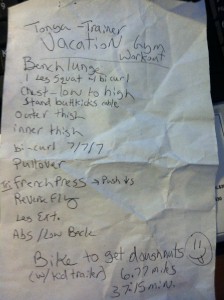 Tonya - Trainer
Vacation Gym
Workout
Bench lunge
1 Leg Squat w/ bi curl
Chest - low to high
Stand buttkicks
outer thigh
inner thigh
bi-curl 7/7/7
Pullover
French Press → Push ↓s
Reverse Fly
Leg Ext.
Abs / Low Back
Bike to get doughnuts
(w/ kid trailer) 6.77 miles
37:15 min.